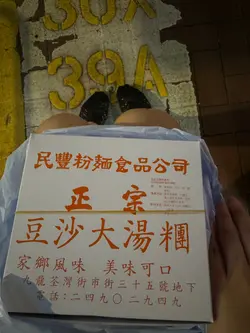 30A
39A
民豐粉麵食品公司
正宗
豆沙大湯糰
家鄉風味 美味可口
九龍荃灣街市街三十五號地下
電話：二四九〇二九四九